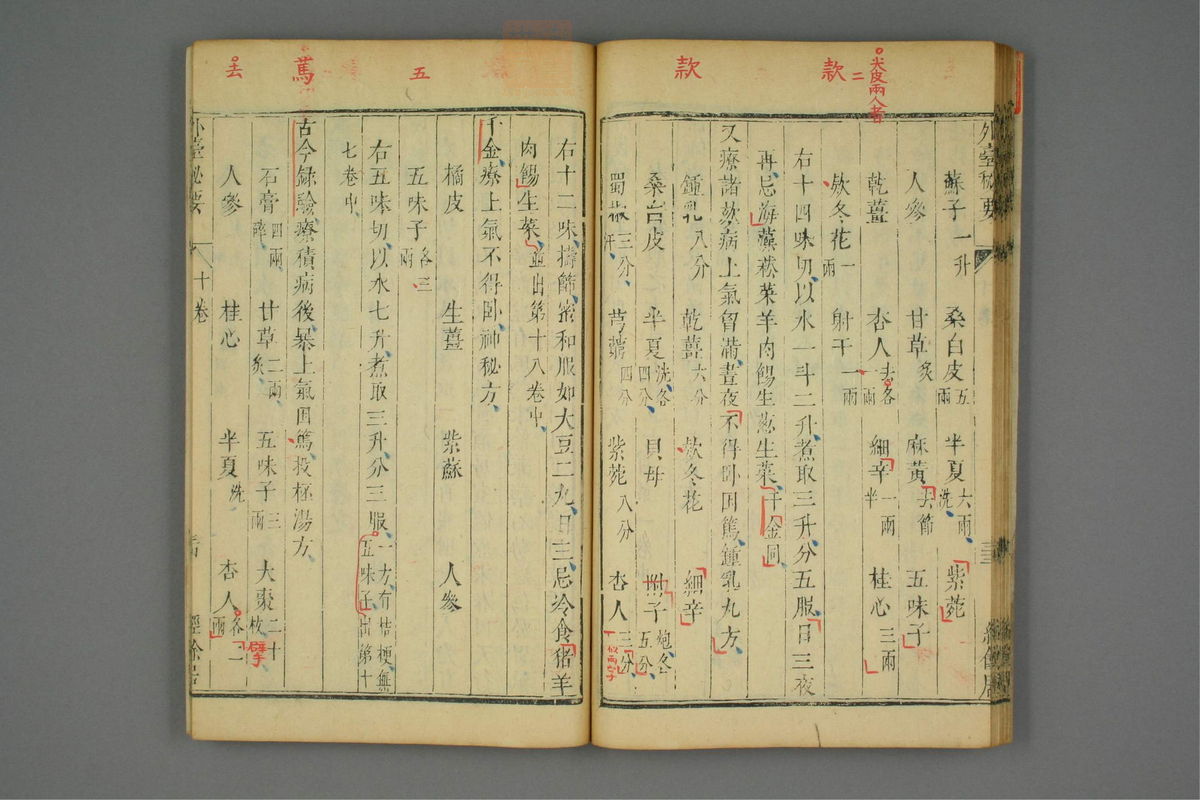 款
款二
尖皮兩人者
外臺秘要
蘇子一升 桑白皮五兩 半夏六兩洗 紫菀
人參 甘草炙 麻黃去節 五味子
乾薑 杏人去各一兩 細辛一兩半 桂心三兩
欵冬花一兩 射干一兩
右十四味切以水一斗二升煮取三升分五服日三夜
再忌海藻菘菜羊肉餳生葱生菜千金同
又療諸欬病上氣胷滿晝夜不得卧困篤鍾乳丸方
鍾乳八分 乾薑六分 欵冬花 細辛
桑白皮 半夏洗各四分 貝母 附子炮各五分
蜀椒三分汗 芎藭四分 紫菀八分 杏人三分
五
篤
去
右十二味擣篩蜜和服如大豆二丸日三忌冷食猪羊
肉餳生菜並出第十八卷中
千金療上氣不得卧神秘方
橘皮 生薑 紫蘇 人參
五味子各三兩
右五味切以水七升煮取三升分三服一方有桔梗無五味子出第十
七卷中
古今録驗療積病後暴上氣困篤投杯湯方
石膏四兩碎 甘草二兩炙 五味子三兩 大棗二十枚擘
人參 桂心 半夏洗 杏人各二兩
外臺秘要 十卷 經餘居